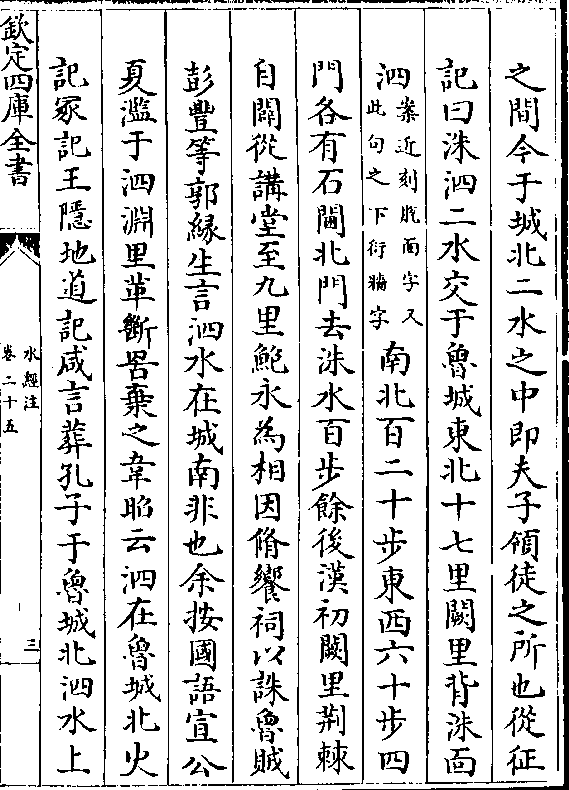 之間今于城北二水之中即夫子領徒之所也從征
記曰洙泗二水交于魯城東北十七里闕里背洙面
泗案近刻脫面字又此句之下衍牆字南北百二十步東西六十步四
門各有石閫北門去洙水百步餘後漢初闕里荆棘
自闢從講堂至九里鮑永為相因脩饗祠以誅魯賊
彭豐等郭緣生言泗水在城南非也余按國語宣公
夏濫于泗淵里革斷罟棄之韋昭云泗在魯城北火
記冢記王隱地道記咸言葬孔子于魯城北泗水上
欽定四庫全書
水經注
卷二十五
三